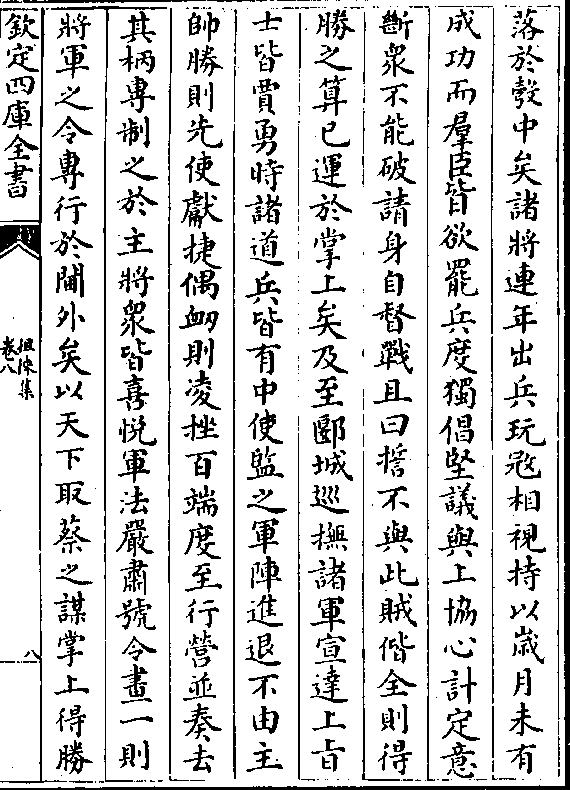 落於彀中矣諸將連年出兵玩㓂相視持以嵗月未有
成功而羣臣皆欲罷兵度獨倡堅議與上協心計定意
斷衆不能破請身自督戰且曰誓不與此賊偕全則得
勝之算已運於掌上矣及至郾城巡撫諸軍宣達上㫖
士皆賈勇時諸道兵皆有中使監之軍陣進退不由主
帥勝則先使獻捷偶衂則凌挫百端度至行營並奏去
其柄専制之於主將衆皆喜悦軍法嚴肅號令畫一則
將軍之令專行於閫外矣以天下取蔡之謀掌上得勝
欽定四庫全書
卷八
八